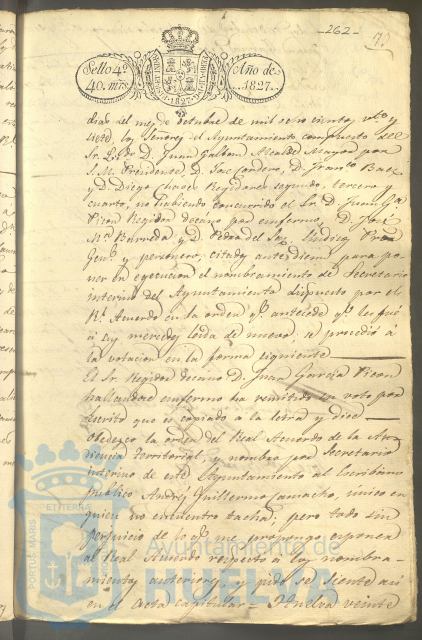 -262-
Sello 4º
40. mrs.
Año de
1827.
dias del mes de octubre de mil ocho cientos veinte y
siete los Señores del Ayuntamiento compuesto del
Sr. Lcdo. D. Juan Galban Alcalde Mayor por
S. M. Presidente, D. José Cordero, D. Franco. Baez
y D. Diego Regidores segundo, tercero y
cuarto, no habiendo concurrido el Sr. D. Juan Ga.
Picon Regidor decano por enfermo, D. José
Ma. Barreda y D. Pedro del Sindico Pror.
Genl. y personero, citados antes diem para po
ner en execucion el nombramiento de Secretario
interino del Ayuntamiento dispuesto por el
Rl. Acuerdo en la orden qe. antecede qe. les fué
á sus mercedes leida de nuevo, se procedió á
la votacion en la forma siguiente
El Sr. Regidor decano D. Juan Garcia Picon
hallandose enfermo ha remitido su voto por
escrito que es copiado á la letra y dice
Obedezco la orden del Real Acuerdo de la Au
diencia territorial, y nombro por Secretario
interino de este Ayuntamiento al Escribano
publico Andres Guillermo Camacho, unico en
quien no encuentro tacha; pero todo sin
perjuicio de lo qe. me propongo exponer
al Real Acuerdo respecto á los nombra-
mientos anteriores, y pido se siente asi
en el Acta capitular = Huelva veinte
PORTUS MARIS
ET TERRÆ
Ayuntamiento de
HUELVA